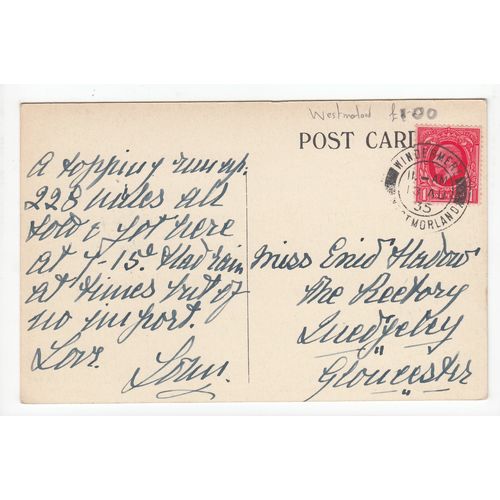 Westmorland £1-00
POST CARD
WINDERMERE
11-AM
13 AU
35
WESTMORLAND
A topping run up.
228 miles all
told & got here
at 7-15. Had rain
at times but of
no import.
Love
Miss Enid Hadow
The Rectory
Quedgeley
Gloucester